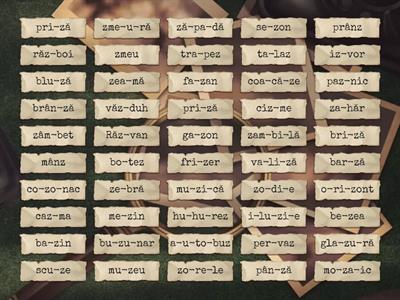 pri-ză zme-u-ră ză-pa-dă se-zon prânz
răz-boi zmeu tra-pez ta-laz iz-vor
blu-ză zea-mă fa-zan coa-că-ze paz-nic
brân-ză văz-duh pri-ză ciz-me za-hăr
zâm-bet Răz-van ga-zon zam-bi-lă bri-ză
mânz bo-tez fri-zer va-li-ză bar-ză
co-zo-nac ze-bră mu-zi-că zo-di-e o-ri-zont
caz-ma me-zin hu-hu-rez i-lu-zi-e be-zea
ba-zin bu-zu-nar a-u-to-buz per-vaz gla-zu-ră
scu-ze mu-zeu zo-re-le pân-ză mo-za-ic